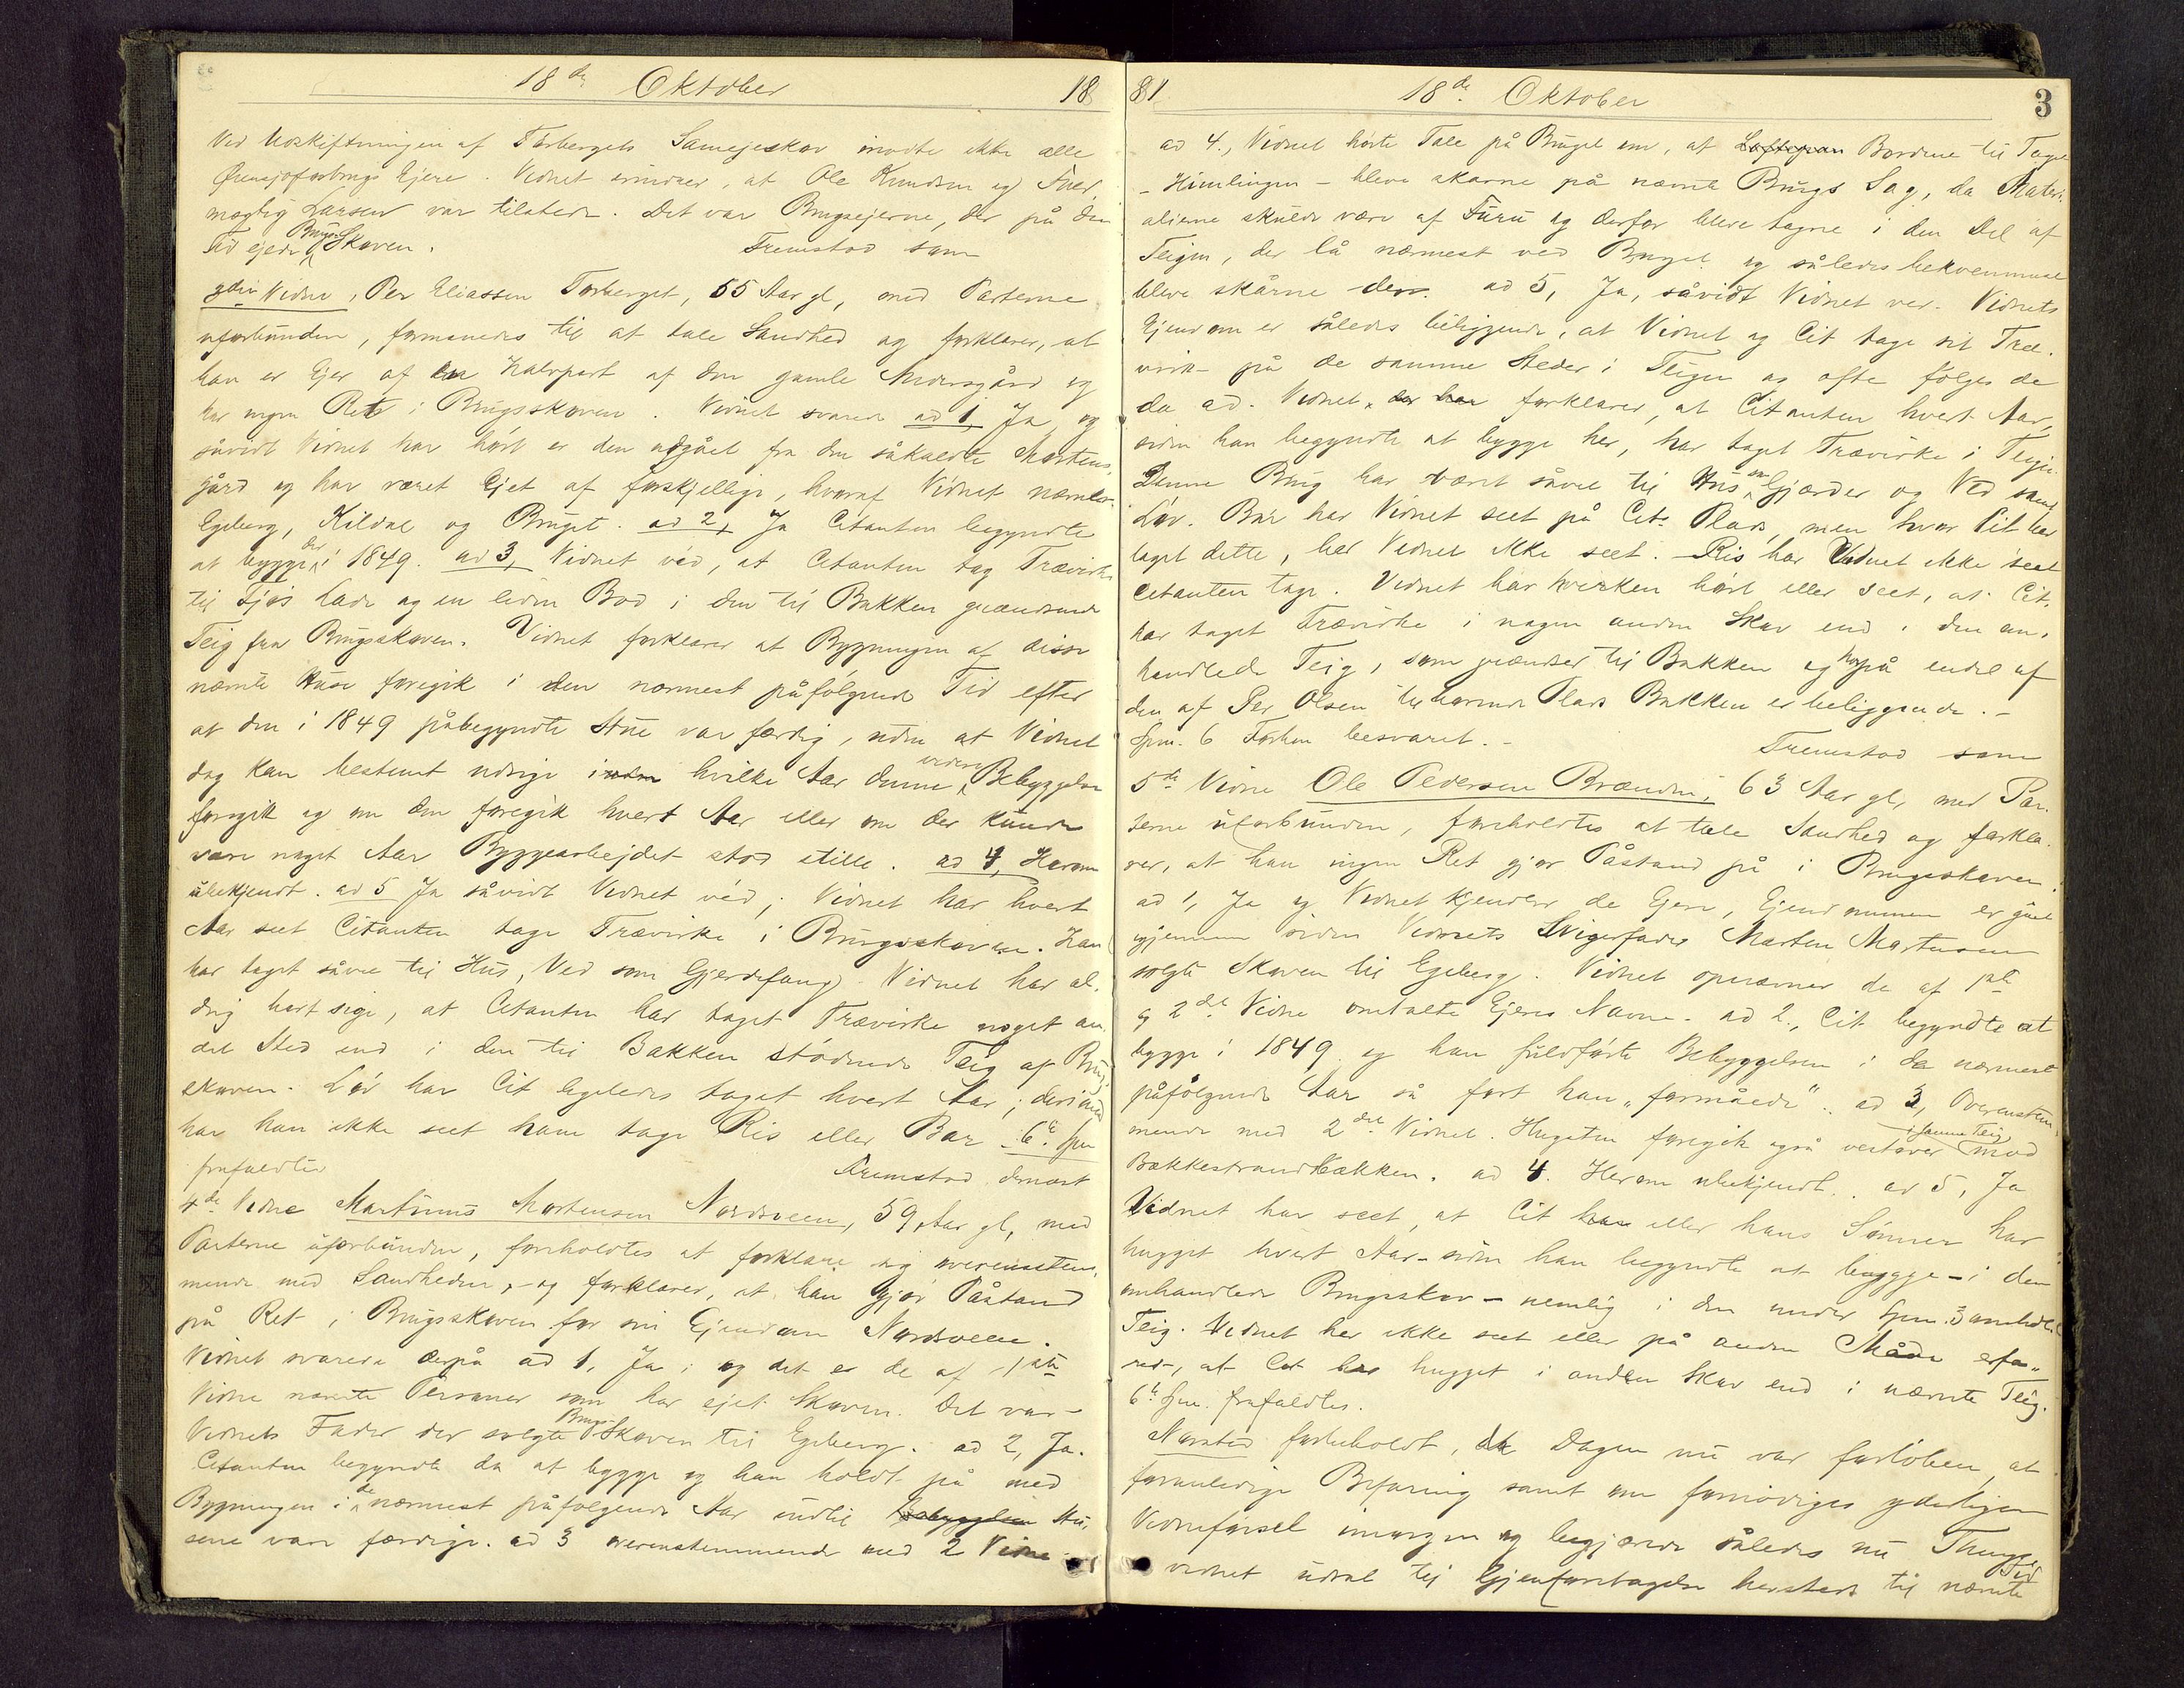 18de Oktober 18
Ved Udskiftningen af Torbergets Samejeskov mødte ikke alle
Ejere. Vidnet erindrer, at Ole Knudsen og
mægtig Larsen var tilstede. Det var Brugsejerne, der på den
Tid ejede Brugs Skoven. Fremstod som
3die Vidne, Per Eliassen Torberget, 55 Aar gl, med Parterne
uforbunden, formanedes til at tale Sandhed og forklarer, at
han er Ejer af en Halvpart af den gamle og
har ingen Ret i Brugsskoven. Vidnet svarer ad 1, Ja og
såvidt Vidnet har hørt er den udgået fra den såkaldte Mortens,
gård og har været Ejet af forskjellige, hvoraf Vidnet nævner
Egeberg, Kildal og Bruget. ad 2, Ja Citanten begyndte
at bygge der i 1849. ad 3, Vidnet véd, at Citanten tog Trævirke
til Fjøs Lade og en liden Bod i den til Bakken grændsende
Teig fra Brugsskoven. Vidnet forklarer at Bygningen af disse
nævnte Huse foregik i den nærmest påfølgende Tid efter
at den i 1849 påbegyndte Stue var færdig, uden at Vidnet
dog kan bestemt udsige hvilke Aar denne videre Bebyggelse
foregik og om den foregik hvert Aar eller om der kunde
være noget Aar Byggearbejdet stod stille. ad 4, Herom
ubekjendt. ad 5 Ja såvidt Vidnet véd; Vidnet har hvert
Aar seet Citanten tage Trævirke i Brugsskoven. Han
har taget såvel til Hus, Ved som Gjerdefang. Vidnet har al-
drig hørt sige, at Citanten har taget Trævirke noget an-
det Sted end i den til Bakken stødende Teig af Brug-
skoven. Løv har Cit ligeledes taget hvert Aar; derimod
har han ikke seet ham tage Ris eller Bar. 6te Spm
frafaldtes Fremstod dernæst
4de Vidne Martinus Mortensen Nordsveen, 59 Aar gl, med
Parterne uforbunden, foreholdtes at forklare sig overensstem,
mende med Sandheden, og forklarer, at han gjør Påstand
på Ret i Brugsskoven for sin Ejendom Nordsveen.
Vidnet svarede derpå ad 1, Ja; og det er de af 1ste
Vidne nævnte Personer som har ejet Skoven. Det var
Vidnets Fader der solgte Brugs-Skoven til Egeberg. ad 2, Ja.
Citanten begyndte da at bygge og han holdt på med
Bygningen i de nærmest påfølgende Aar indtil Bebyggelsen Hu,
sene vare færdige. ad 3 overensstemmende med 2 Vidne.
81 18de Oktober 3
ad 4., Vidnet hørte Tale på Bruget om, at Bordene til Taget
- Himlingen - bleve skårne på nævnte Brugs Sag, da Materi,
alierne skulde være af Furu og derfor bleve tagne i den Del af
Teigen, der lå nærmest ved Bruget og således bekvemmest
bleve skårne der. ad 5, Ja, såvidt Vidnet ved. Vidnets
Ejendom er således beliggende, at Vidnet og Cit tage sit Træ-
virke på de samme Steder i Teigen og ofte følges de
da ad. Vidnet forklarer, at Citanten hvert Aar,
siden han begyndte at bygge her, har taget Trævirke i Teigen
Denne Brug har været såvel til Hus som Gjærder og Ved samt
Løv. Bar har Vidnet seet på Cits Plads, men hvor Cit har
taget dette, har Vidnet ikke seet. Ris har Vidnet ikke seet
Citanten tage. Vidnet har hverken hørt eller seet, at Cit.
har taget Trævirke i nogen anden Skov end i den om,
handlede Teig, som grændser til Bakken og hvorpå endel af
den af Per Olsen tilhørende Plads Bakken er beliggende. -
Spm. 6 Forhen besvaret. - Fremstod som
5te Vidne Ole Pedersen Brænden, 63 Aar gl, med Par-
terne uforbunden, foreholdtes at tale Sandhed og forkla-
rer, at han ingen Ret gjør Påstand på i Brugsskoven.
ad 1, Ja og Vidnet kjender de Ejere, Ejendommen er gået
igjennem siden Vidnets Svigerfader Morten Mortensen
solgte Skoven til Egeberg. Vidnet opnævner de af 1ste
og 2det Vidne omtalte Ejeres Navne. ad 2., Cit begyndte at
bygge i 1849 og han fuldførte Bebyggelsen i de nærmest
påfølgende Aar så fort han „formåede". ad 3, Overensstem,
mende med 2det Vidne. Hugsten foregik også vestover i samme Teig mod
Bakkestrandbækken. ad 4. Herom ubekjendt. ad 5, Ja
Vidnet har seet, at Cit eller hans Sønner har
hugget hvert Aar - siden han begyndte at bygge - i den
omhandlede Brugsskov - nemlig i den under Spm. 3 omhandlede
Teig. Vidnet har ikke seet eller på anden Måde erfa-
ret, at Cit har hugget i anden Skov end i nævnte Teig.
6te Spm. frafaldtes.
forbeholdt, da Dagen nu var forløben, at
foranledige Befaring samt om fornødiges yderligere
Vidneførsel imorgen og begjærede således nu Thinge
vidnet udsat til Gjenforetagelse hersteds til nævnte Tid